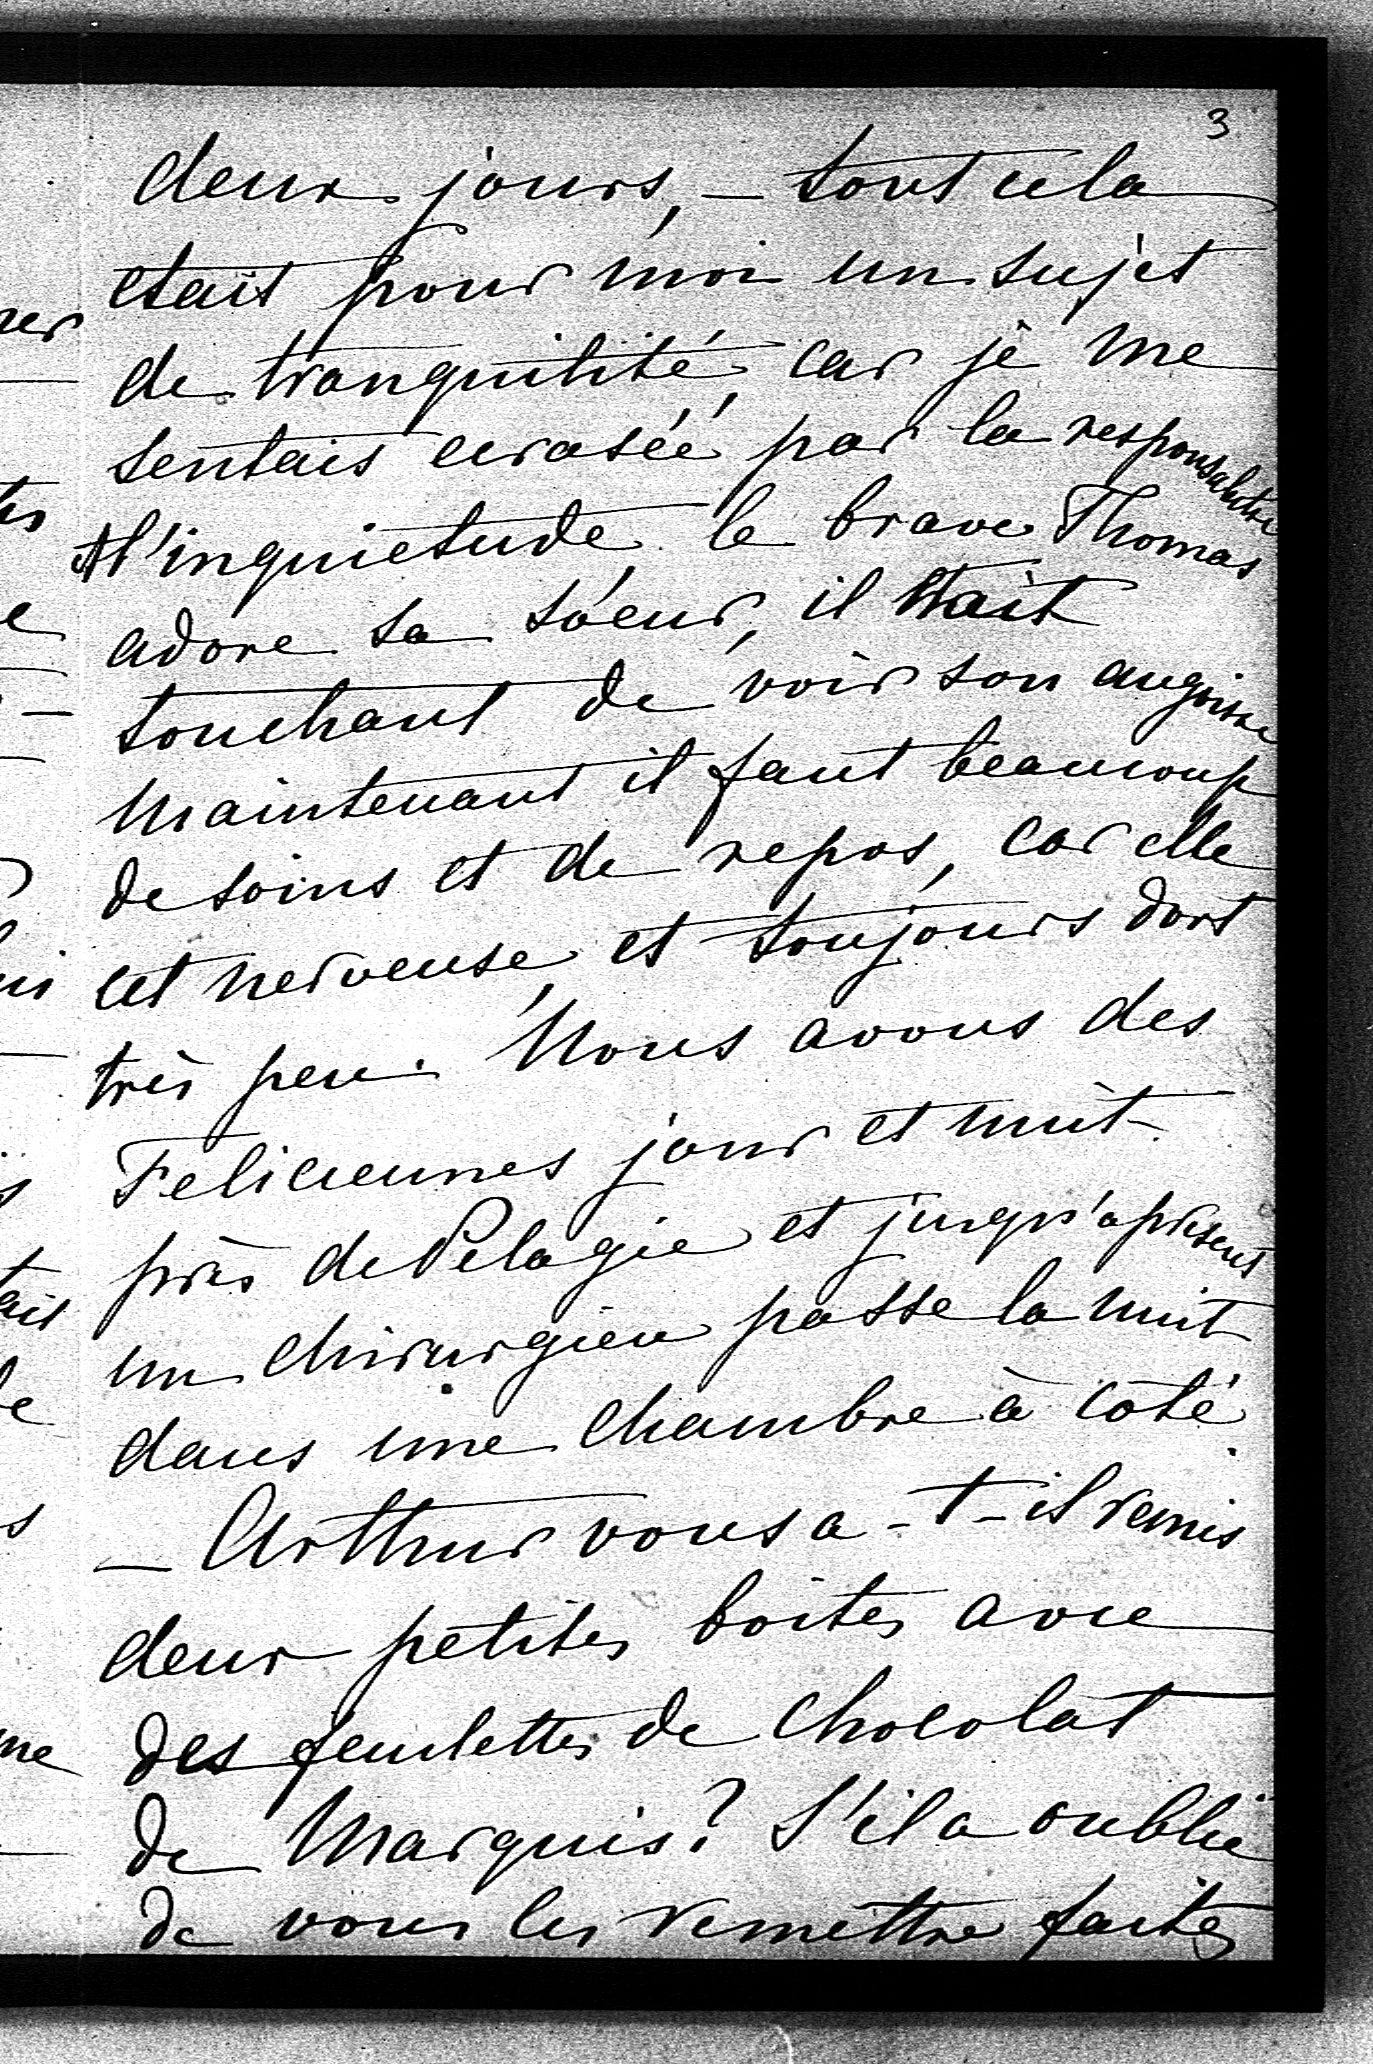 3
deux jours, – tout cela
etait pour moi un sujet
de tranquilité, car je me
sentais ecrasée par la responsabilité
et l'inquietude, le brave Thomas
adore sa soeur, il était
touchant de voir son angoisse
Maintenant il faut beaucoup
de soins et de repos, car elle
est nerveuse, et toujours dort
très peu. Nous avons des
Feliciennes jour et nuit
près de Pelagie et jusqu'a présent
un chirurgien passe la nuit
dans une chambre à côté.
– Arthur vous a-t-il remis
deux petites boites avec
des feuilettes de chocolat
de Marquis? S'il a oublié
de vous les remettre faites